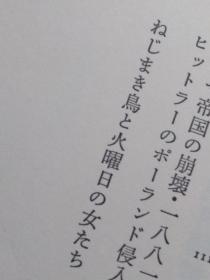 帝国の崩壊・一八八一
ヒットラーのポーランド侵入
ねじまき鳥と火曜日の女たち
111